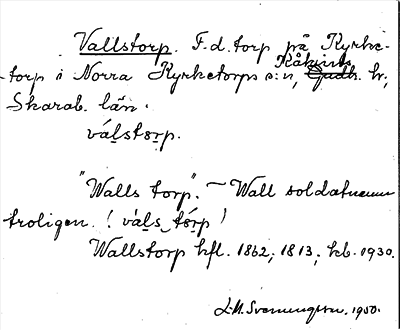 Vallstorp. F.d. torp på Kyrke-
Kåkinds
torp i Norra Kyrketorps s:n, Gudh. hr;
Skarab. län.
válstɔrp.
"Walls torp". — Wall soldatnamn
troligen. (váls_tɔ́rp)
Wallstorp hfl. 1862; 1813; kb. 1930.
1950.